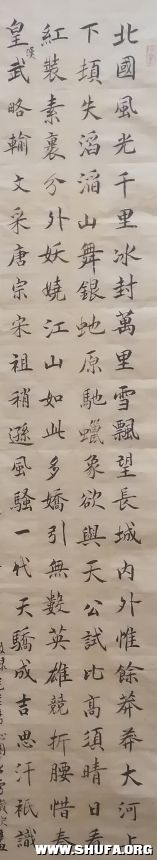 北國風光千里冰封萬里雪飄望長城內外惟餘莽莽大河上
下頓失滔滔山舞銀虵原馳蠟象欲與天公試比高須晴日看
紅裝素裹分外妖嬈江山如此多嬌引無數英雄競折腰惜秦
皇漢武略輸文采唐宗宋祖稍遜風騷一代天驕成吉思汗祇識
WWW.SHUFA.ORG